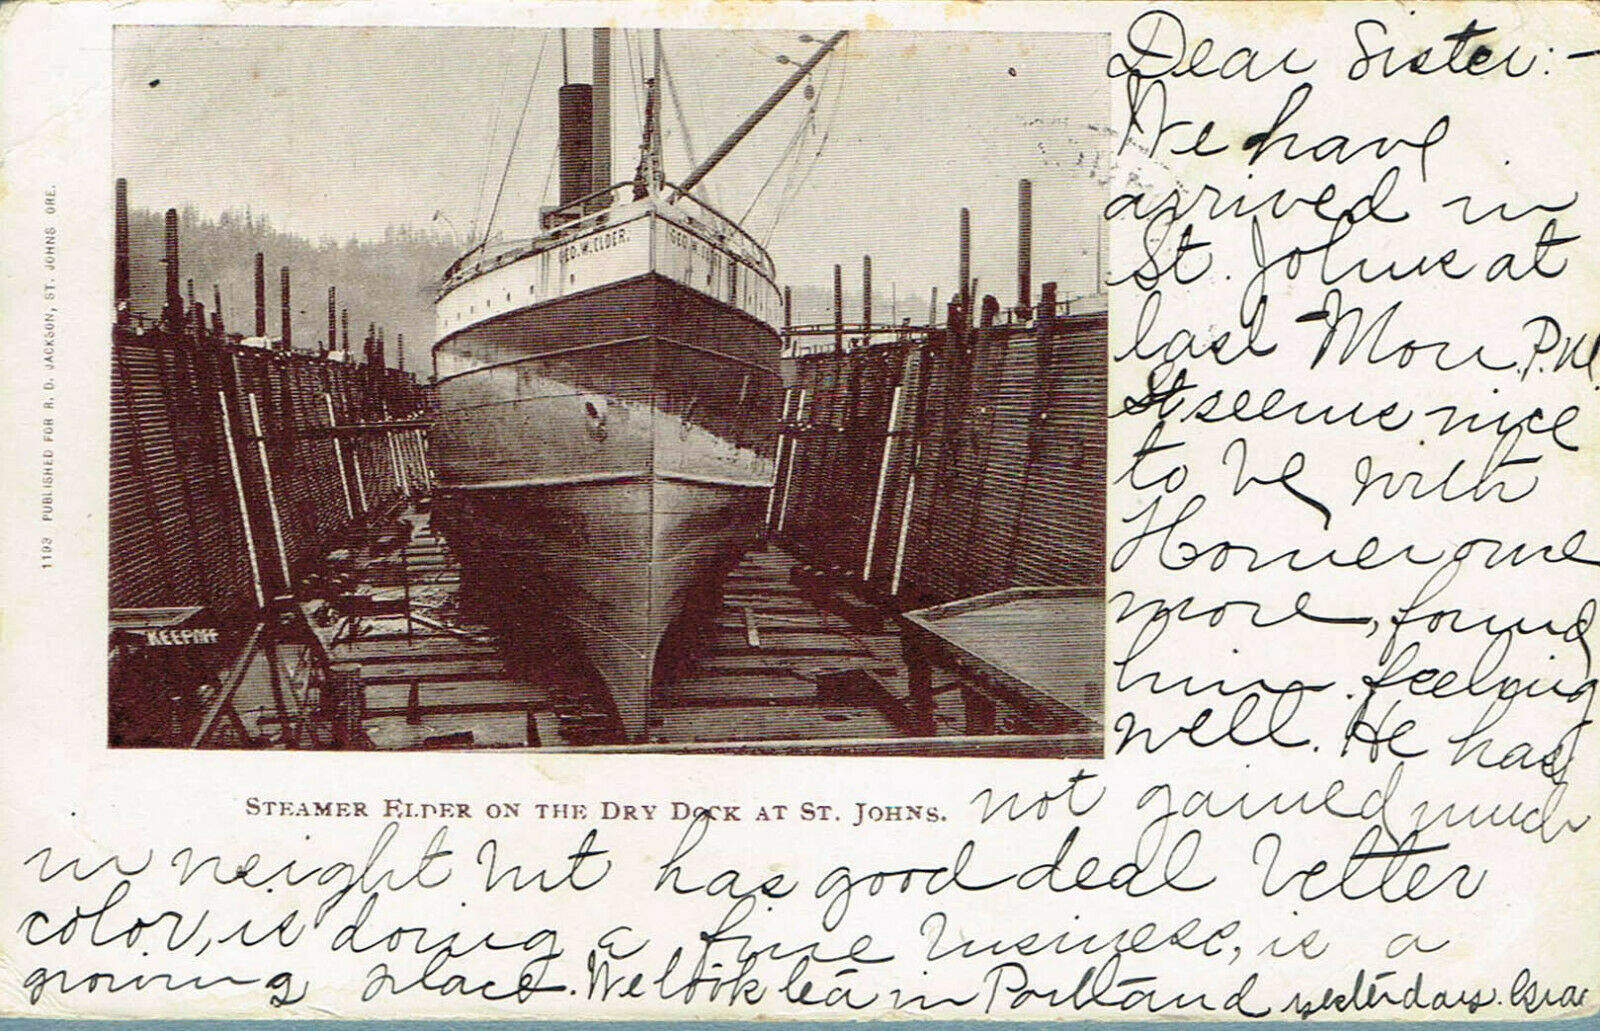 Dear Sister:-
We have
arrived in
St. Johns at
last Mon. P.M.
It seems nice
to be with
Homer once
more, found
him feeling
well. He has
not gained much
in weight but has good deal better
color, is doing a fine business, is a
growing place. We took tea in Portland yesterday.
1193 PUBLISHED FOR R. D. JACKSON, ST. JOHNS ORE.
GEO. W. ELDER.
GEO. W.
KEEP OFF
STEAMER ELDER ON THE DRY DOCK AT ST. JOHNS.